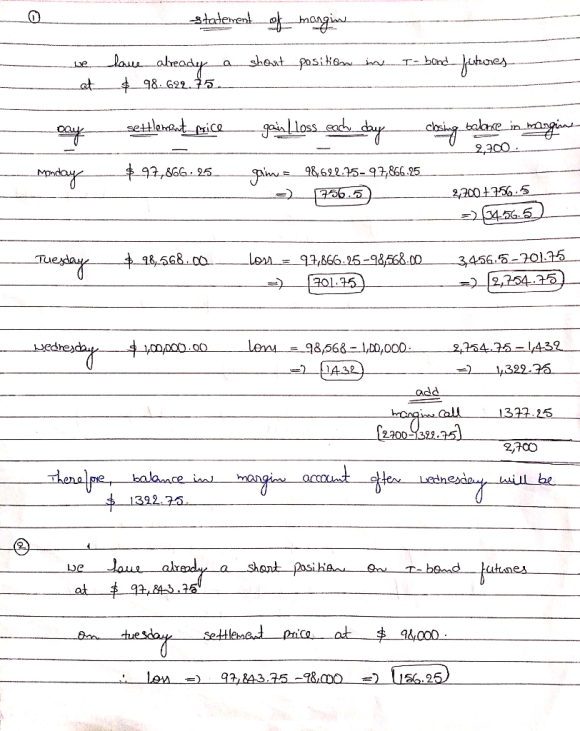 ① Statement of margin
we have already a short position in T-bond futures
at $ 98.622.75.
Day settlement price gain/loss each day closing balance in margin
2,700.
Monday $ 97,866.25 gain = 98,622.75-97,866.25
=> 756.5 2,700+756.5
=> 3456.5
Tuesday $ 98,568.00 Loss = 97,866.25-98,568.00 3,456.5-701.75
=> 701.75 => 2,754.75
Wednesday $ 1,00,000.00 Loss = 98,568-1,00,000. 2,754.75-1,432
=> 1432 => 1,322.75
add
margin call 1377.25
[2700-1322.75]
2,700
Therefore, balance in margin account after wednesday will be
$ 1322.75.
②
we have already a short position on T-bond futures
at $ 97,843.75
on tuesday settlement price at $ 98,000.
∴ Loss => 97,843.75-98,000 => 156.25